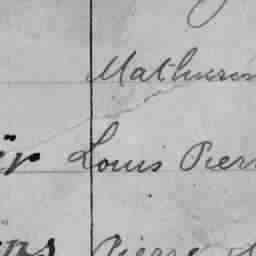 Mathurin
ër Louis Pierr
ens Pierre